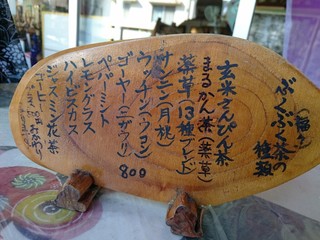 (福々)
ぶくぶく茶の種類
玄米さんぴん茶
まるかん茶(薬草)
薬草(13種ブレンド)
サンニン(月桃)
ウッチン(ウコン)
ゴーヤー(ニガウリ) 800
ペパーミント
レモングラス
ハイビスカス
ジャスミン花茶